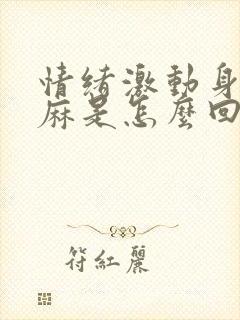 情緒激動身
麻是怎麼回
符紅麗